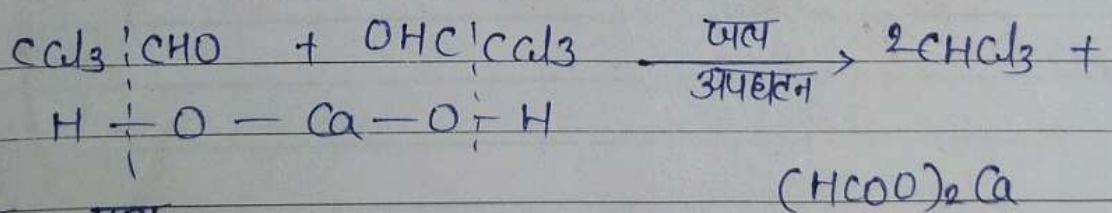 CCl3 CHO + OHC CCl3 जल अपघटन → 2CHCl3 +
H - O - Ca - O - H
(HCOO)2 Ca